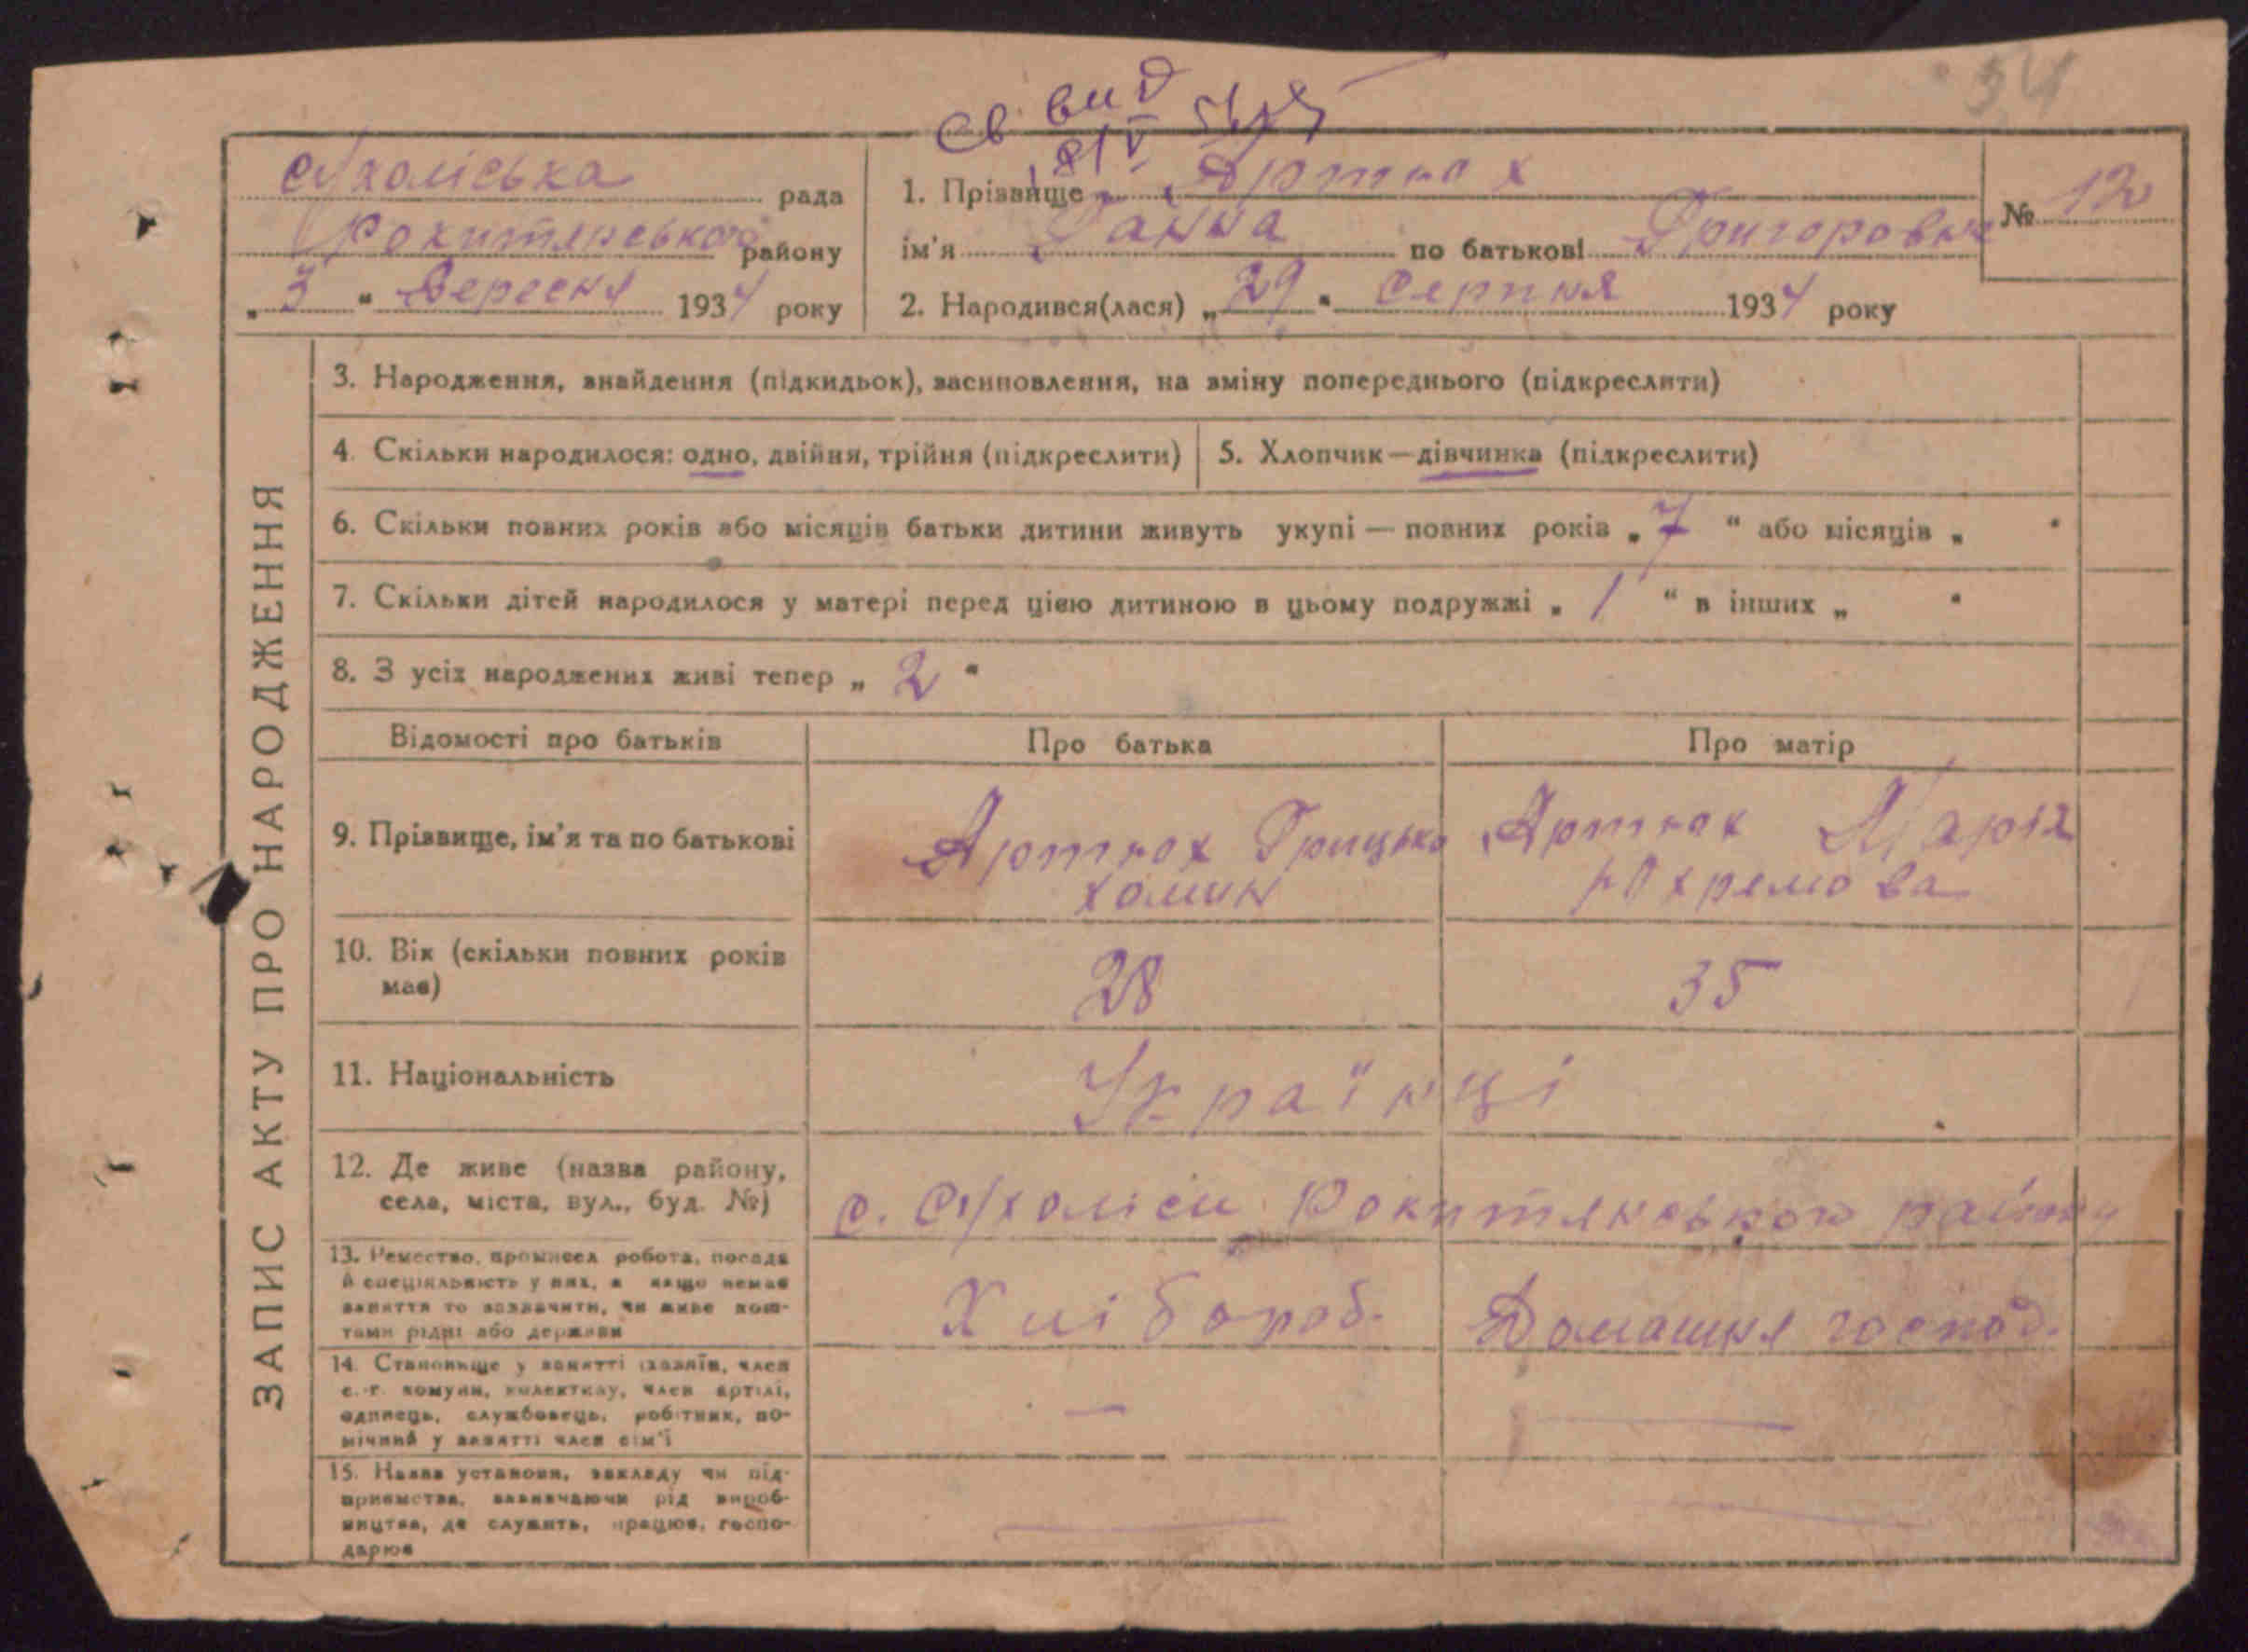 54
Св. вид
Сухоліська рада
Рокитянського району
„ 3 “ Вересня 1934 року
1. Прізвище Артюх
№ 12
ім'я Ганна по батькові Григоровна
2. Народився(лася) „ 29 “ Серпня 1934 року
ЗАПИС АКТУ ПРО НАРОДЖЕННЯ
3. Народження, знайдення (підкидьок), засиновлення, на зміну попереднього (підкреслити)
4. Скільки народилося: одно, двійня, трійня (підкреслити)
5. Хлопчик—дівчинка (підкреслити)
6. Скільки повних років або місяців батьки дитини живуть укупі — повних років „ 7 “ або місяців „ “
7. Скільки дітей народилося у матері перед цією дитиною в цьому подружжі „ 1 “ в інших „ “
8. З усіх народжених живі тепер „ 2 “
Відомості про батьків
Про батька
Про матір
9. Прізвище, ім'я та по батькові
Артюх Грицько
Хомин
Артюх Марія
Юхремова
10. Вік (скільки повних років
має)
28
35
11. Національність
Українці
12. Де живе (назва району,
села, міста, вул., буд. №)
с. Сухоліси Рокитянського району
13. Ремество, промисел, робота, посада
й спеціяльність у них, а якщо немає
заняття то зазначити, чи живе кош-
тами рідні або держави
Хлібороб.
Домашня господ.
14. Становище у занятті (хазяїн, член
с.-г. комуни, колективу, член артілі,
одинець, службовець, робітник, по-
мічний у занятті член сім'ї
—
—
15. Назва установи, закладу чи під-
приємства, зазначаючи рід вироб-
ництва, де служить, працює, госпо-
дарює
—
—